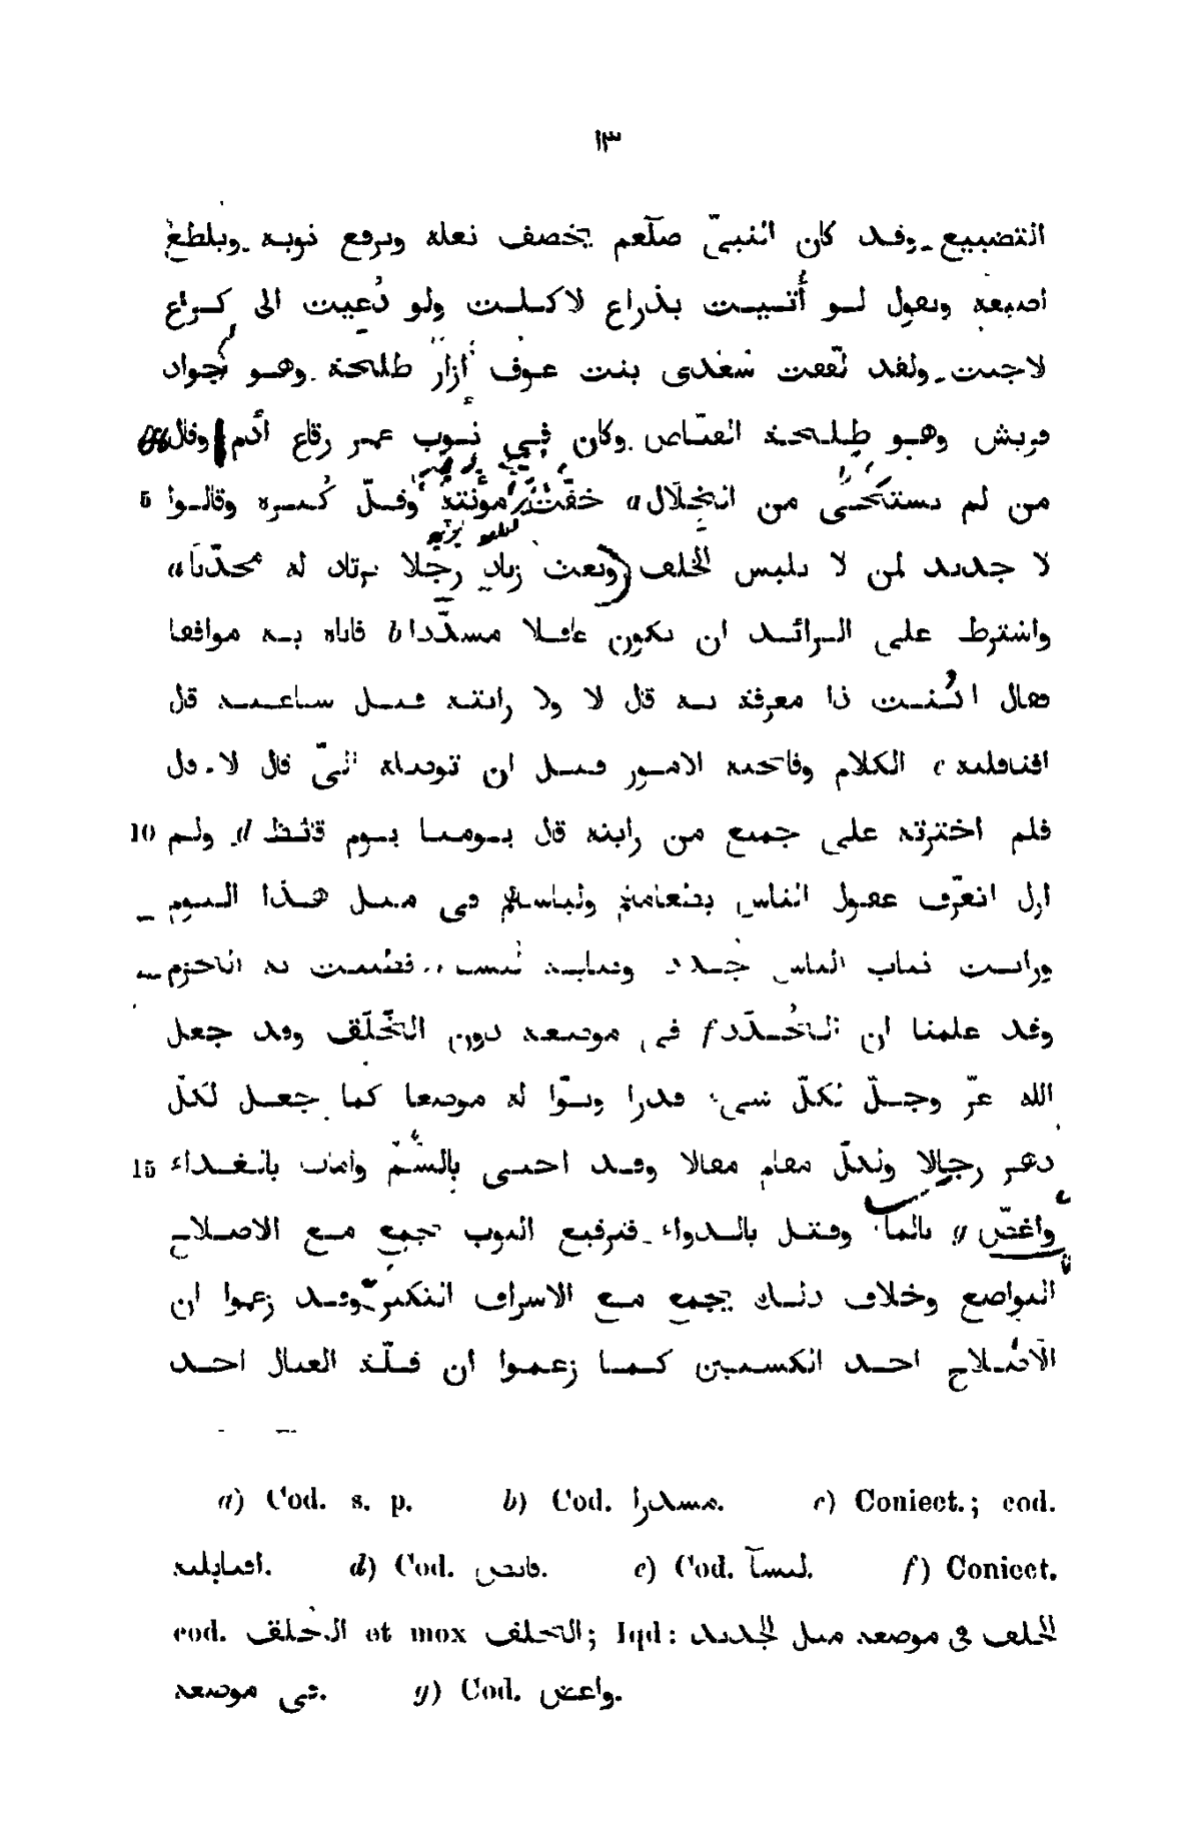 ١٣
التضييع وقد كان النبيّ صلّعم يخصف نعله ويرقع ثوبه ويلطع
اصبعه ويقول لـو أُتـيـت بذراع لاكـلـت ولو دُعيت الى كـراع
لاجبت ولقد لفّقت سُعْدى بنت عوف ازار طلحة وهـو جواد
قريش وهـو طلـحـة الفيّاض وكان في ثـوب عمر رقاع أدم وقال
من لم يستحى من الحلال a خفّت مؤنته وقـلّ كبره وقالـوا 5
لا جديد لمن لا يلبس الخلق وبعث زياد رجلا يرتاد له محدّثا a
واشترط على الـرائـد ان يكون عاقـلا مسدّدا b فاتاه بـه موافقا
فقال اكُنـت ذا معرفة به قال لا ولا رايته قبـل سـاعـتـه قال
افناقلته c الكلام وفاتحته الامـور قبـل ان توصله الىّ قال لا قال
فلم اخترته على جميع من رايته قال يـومنـا يـوم قائـظ d ولم 10
ازل اتعرّف عقول الناس بطعامهم ولباسهم في مثـل هـذا اليـوم
ورايـت ثياب الناس جُـدُد وثيابـه لُبـس e فظننـت به الحزم
وقد علمنا ان الجُـدَد f في موضعه دون الخَلَق وقد جعل
الله عزّ وجـلّ لكلّ شىء قدرا وبـوّا له موضعا كما جعـل لكلّ
دهـر رجالا ولكلّ مقام مقالا وقـد احيى بالسُّمّ وامات بالـغـداء 15
واغصّ g بالماء وقتـل بالـدواء فترقيع الثوب يجمع مـع الاصـلاح
التواضع وخلاف ذلـك يجمع مـع الاسراف التكبر وقـد زعموا ان
الاصـلاح احـد الكسـبين كـمـا زعـمـوا ان قـلّـة العيال احـد
a) Cod. s. p. b) Cod. مسدرا. c) Coniect.; cod.
افنابلته. d) Cod. قابض. e) Cod. لبسآ. f) Coniect.
cod. الخلق et mox التخلف; Iqd: الخلق في موضعه مثل الجديد
في موضعه. g) Cod. واعض.